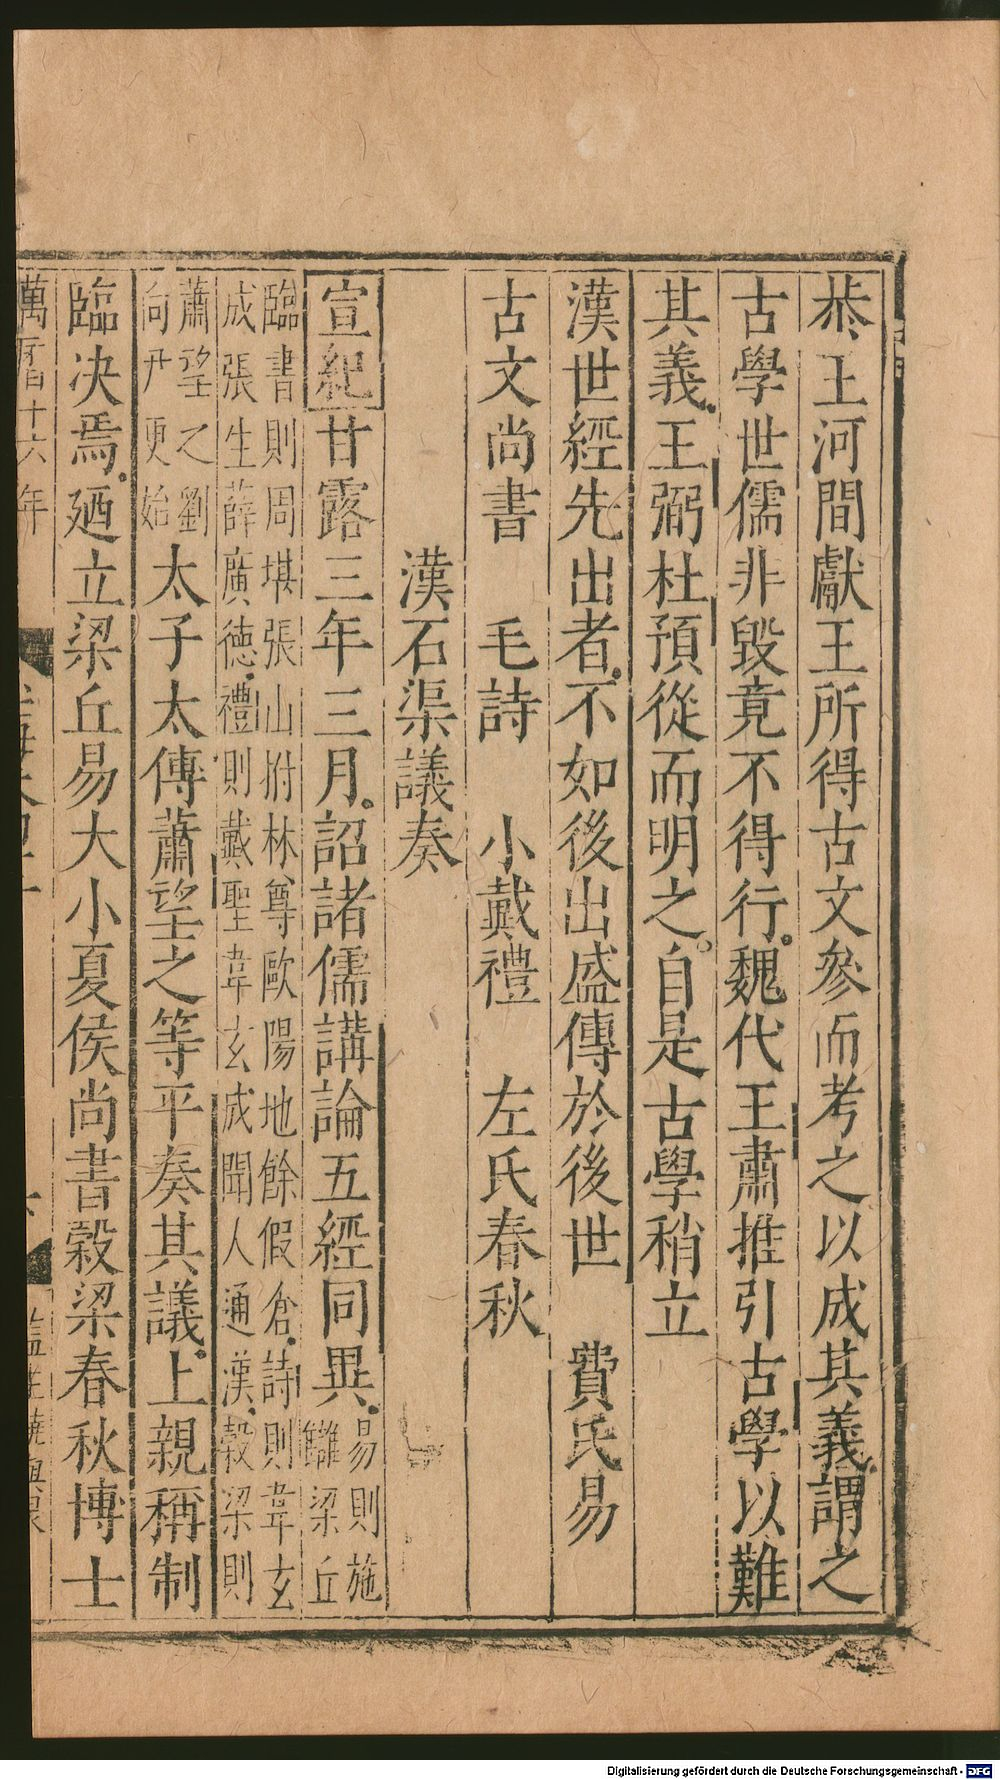 恭王河間獻王所得古文參而考之以成其義謂之
古學世儒非毀竟不得行魏代王肅推引古學以難
其義王弼杜預從而明之自是古學稍立
漢世經先出者不如後出盛傳於後世　費氏易
古文尚書　毛詩　小戴禮　左氏春秋
漢石渠議奏
宣紀甘露三年三月詔諸儒講論五經同異易則施
讎梁丘
臨書則周堪張山拊林尊歐陽地餘假倉詩則韋玄
成張生薛廣德禮則戴聖韋玄成聞人通漢穀梁則
蕭望之劉
向尹更始太子太傅蕭望之等平奏其議上親稱制
臨决焉廼立梁丘易大小夏侯尚書穀梁春秋博士
萬曆十六年
Digitalisierung gefördert durch die Deutsche Forschungsgemeinschaft - DFG